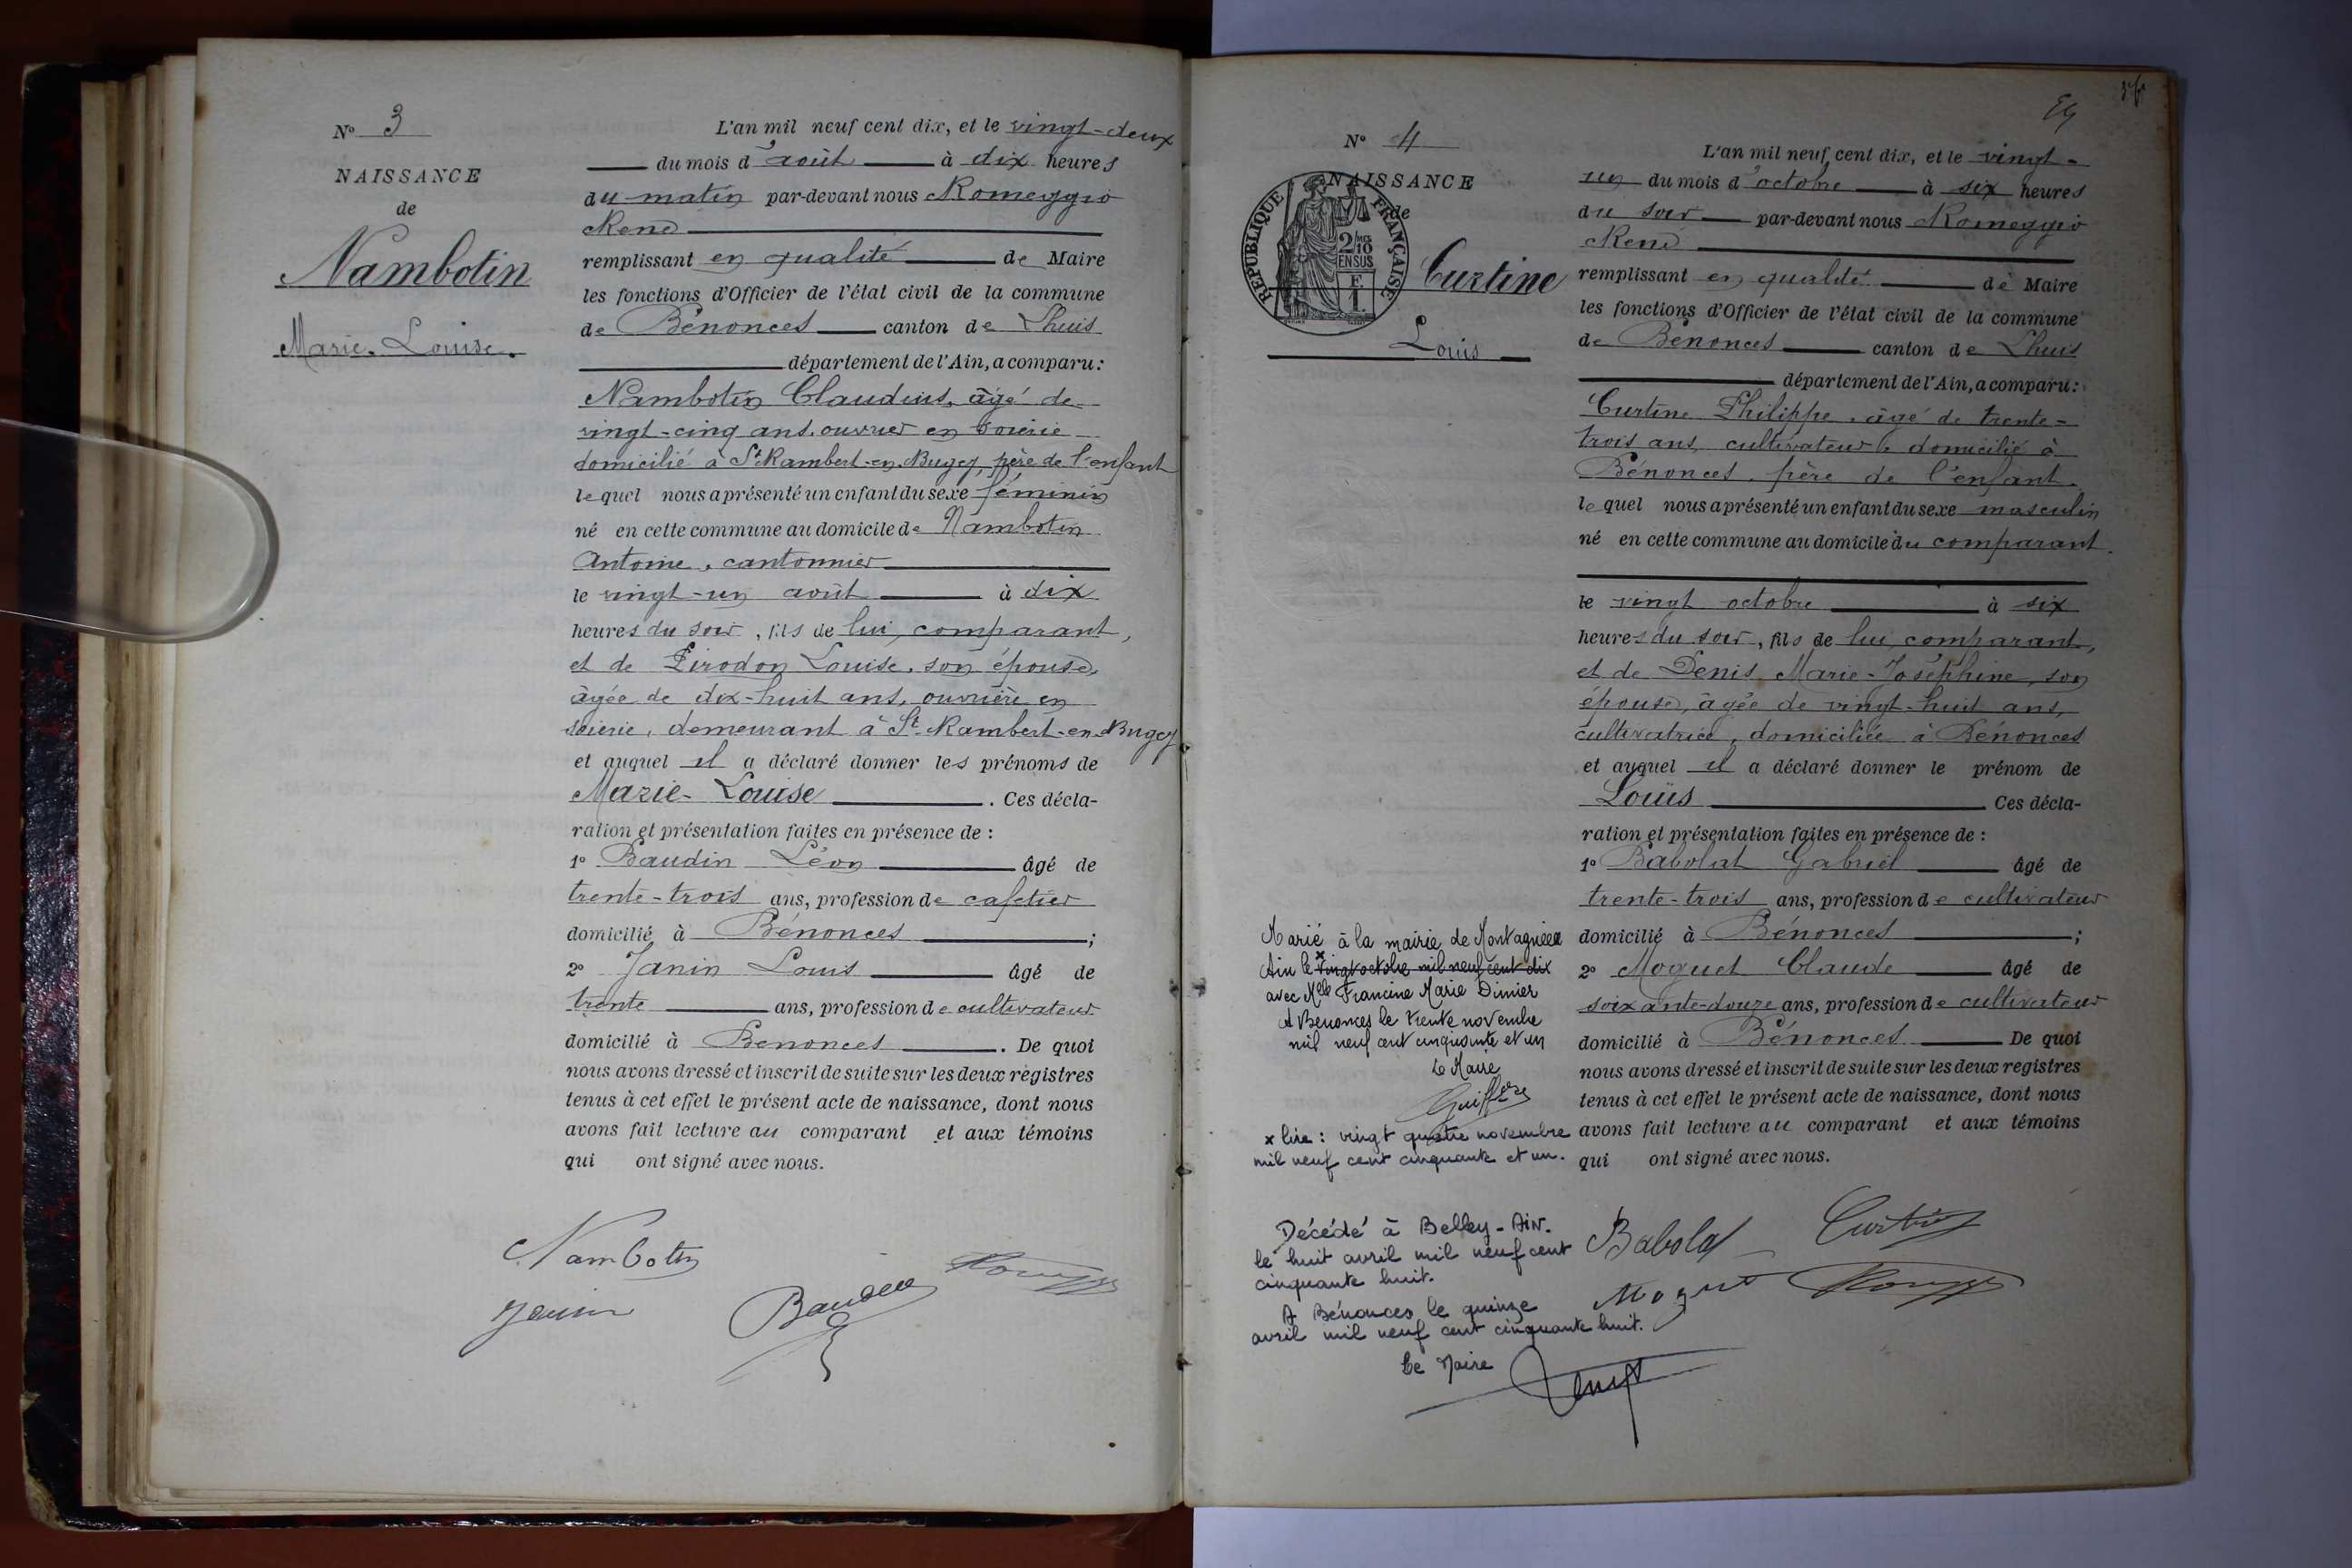 N° 3
NAISSANCE
de
Nambotin
Marie-Louise.
L'an mil neuf cent dix, et le vingt-deux
du mois d'août à dix heures
du matin par-devant nous Romeggio
René
remplissant en qualité de Maire
les fonctions d'Officier de l'état civil de la commune
de Bénonces canton de Lhuis
département de l'Ain, a comparu:
Nambotin Claudius, âgé de
vingt-cinq ans, ouvrier en soierie
domicilié à St Rambert-en-Bugey, père de l'enfant
lequel nous a présenté un enfant du sexe féminin
né en cette commune au domicile de Nambotin
Antoine, cantonnier
le vingt-un août à dix
heures du soir, fils de lui, comparant,
et de Pirodon Louise, son épouse,
âgée de dix-huit ans, ouvrière en
soierie, demeurant à St Rambert-en-Bugey
et auquel il a déclaré donner les prénoms de
Marie-Louise. Ces décla-
ration et présentation faites en présence de :
1° Baudin Léon âgé de
trente-trois ans, profession de cafetier
domicilié à Bénonces ;
2° Janin Louis âgé de
trente ans, profession de cultivateur
domicilié à Bénonces. De quoi
nous avons dressé et inscrit de suite sur les deux registres
tenus à cet effet le présent acte de naissance, dont nous
avons fait lecture au comparant et aux témoins
qui ont signé avec nous.
Nambotin
Janin
Baudin
N° 4
NAISSANCE
de
REPUBLIQUE FRANÇAISE
2/10
EN SUS
Curtine
Louis
L'an mil neuf cent dix, et le vingt-
un du mois d'octobre à six heures
du soir par-devant nous Romeggio
René
remplissant en qualité de Maire
les fonctions d'Officier de l'état civil de la commune
de Bénonces canton de Lhuis
département de l'Ain, a comparu:
Curtine Philippe, âgé de trente-
trois ans, cultivateur, domicilié à
Bénonces, père de l'enfant.
lequel nous a présenté un enfant du sexe masculin
né en cette commune au domicile du comparant.
le vingt octobre à six
heures du soir, fils de lui, comparant,
et de Denis Marie-Joséphine, son
épouse, âgée de vingt-huit ans,
cultivatrice, domiciliée à Bénonces
et auquel il a déclaré donner le prénom de
Louis. Ces décla-
ration et présentation faites en présence de :
1° Babolat Gabriel âgé de
trente-trois ans, profession de cultivateur
domicilié à Bénonces ;
2° Moguet Claude âgé de
soixante-douze ans, profession de cultivateur
domicilié à Bénonces De quoi
nous avons dressé et inscrit de suite sur les deux registres
tenus à cet effet le présent acte de naissance, dont nous
avons fait lecture au comparant et aux témoins
qui ont signé avec nous.
Marié à la mairie de Montagnieu
Ain le x vingt octobre mil neuf cent dix
avec Melle Francine Marie Dimier
A Bénonces le trente novembre
mil neuf cent cinquante et un
Le Maire
x lire : vingt quatre novembre
mil neuf cent cinquante et un.
Décédé à Belley-Ain-
le huit avril mil neuf cent
cinquante huit.
A Bénonces le quinze
avril mil neuf cent cinquante huit.
Le Maire
Babolat
Curtine
Moguet